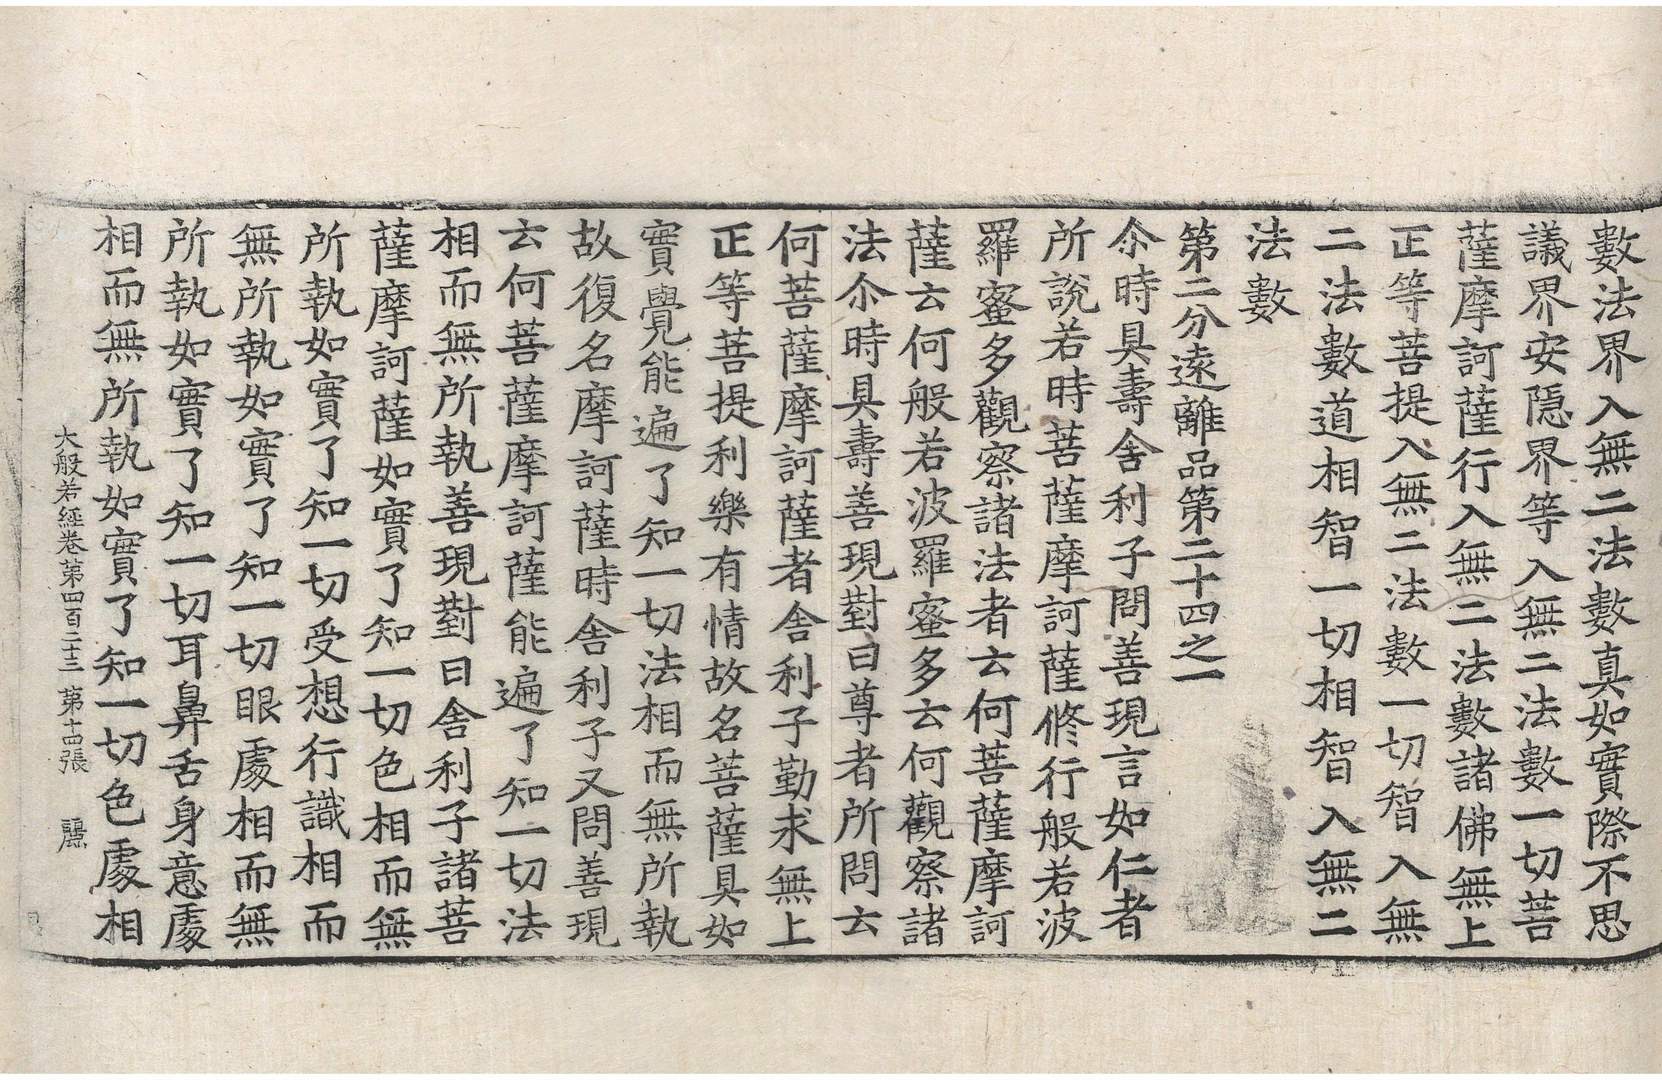 數法界入無二法數真如實際不思
議界安隱界等入無二法數一切菩
薩摩訶薩行入無二法數諸佛無上
正等菩提入無二法數一切智入無
二法數道相智一切相智入無二
法數
第二分遠離品第二十四之一
尒時具壽舍利子問善現言如仁者
所說若時菩薩摩訶薩修行般若波
羅蜜多觀察諸法者云何菩薩摩訶
薩云何般若波羅蜜多云何觀察諸
法尒時具壽善現對曰尊者所問云
何菩薩摩訶薩者舍利子勤求無上
正等菩提利樂有情故名菩薩具如
實覺能遍了知一切法相而無所執
故復名摩訶薩時舍利子又問善現
云何菩薩摩訶薩能遍了知一切法
相而無所執善現對曰舍利子諸菩
薩摩訶薩如實了知一切色相而無
所執如實了知一切受想行識相而
無所執如實了知一切眼處相而無
所執如實了知一切耳鼻舌身意處
相而無所執如實了知一切色處相
大般若經卷第四百二十三 第十四張